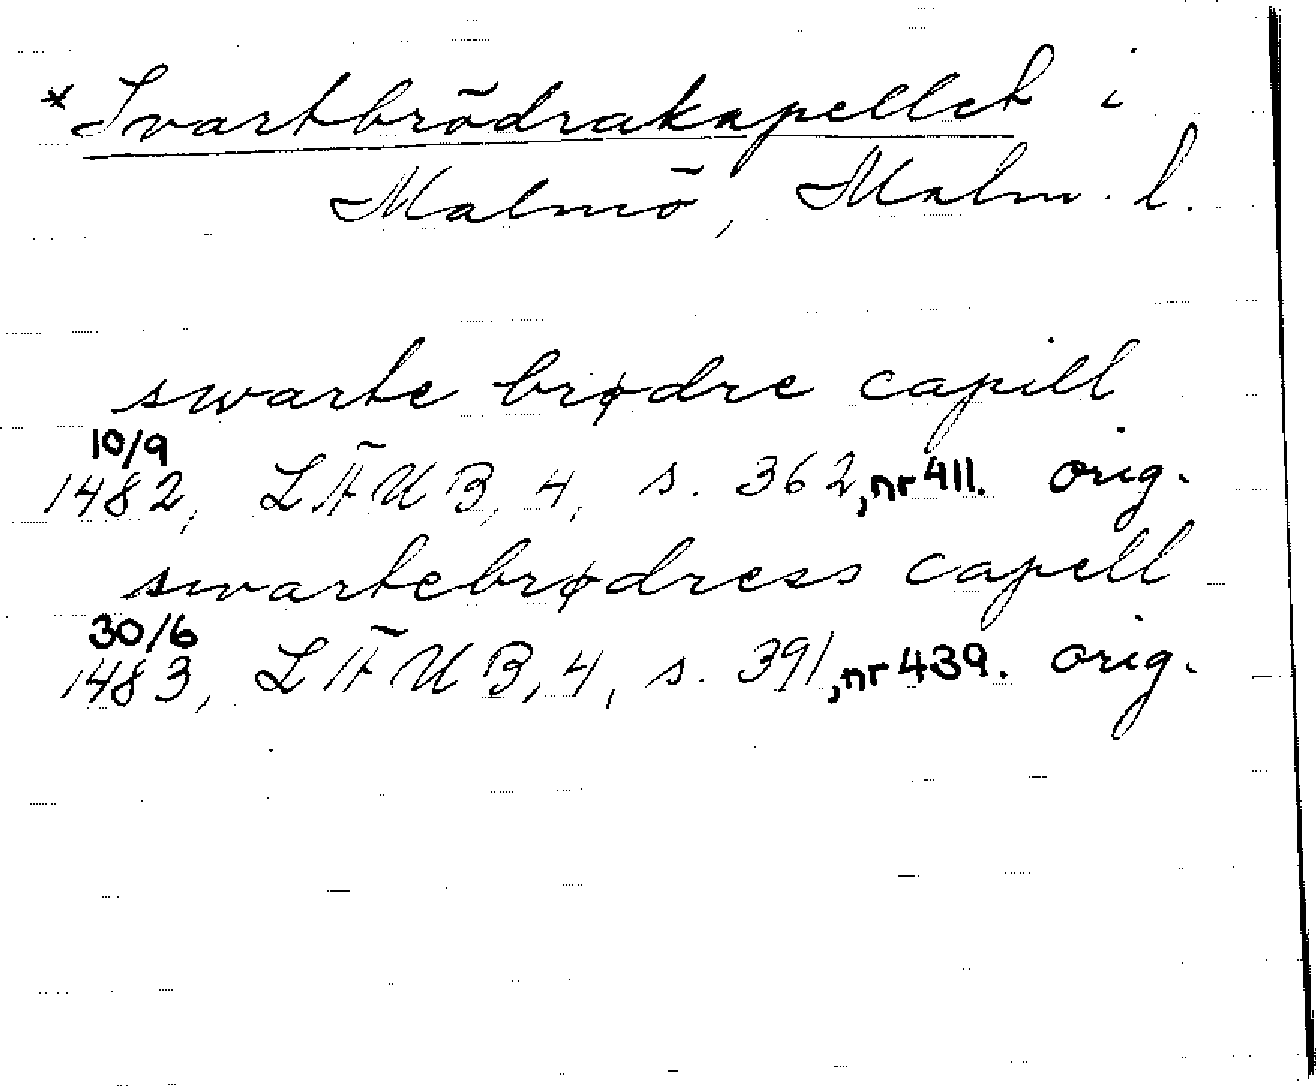 *Svartbrödrakapellet i
Malmö, Malm. l.
swarte brødre capill
10/9
1482, LÄUB, 4, s. 362, nr 411. orig.
swartebrødress capell
30/6
1483, LÄUB, 4, s. 391, nr 439. orig.